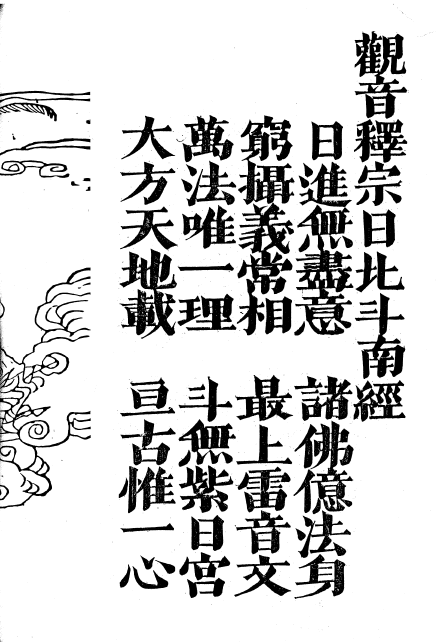 觀音釋宗日北斗南經
日進無盡意　諸佛億法身
窮攝義常相　最上雷音文
萬法唯一理　斗無紫日宮
大方天地載　亘古惟一心